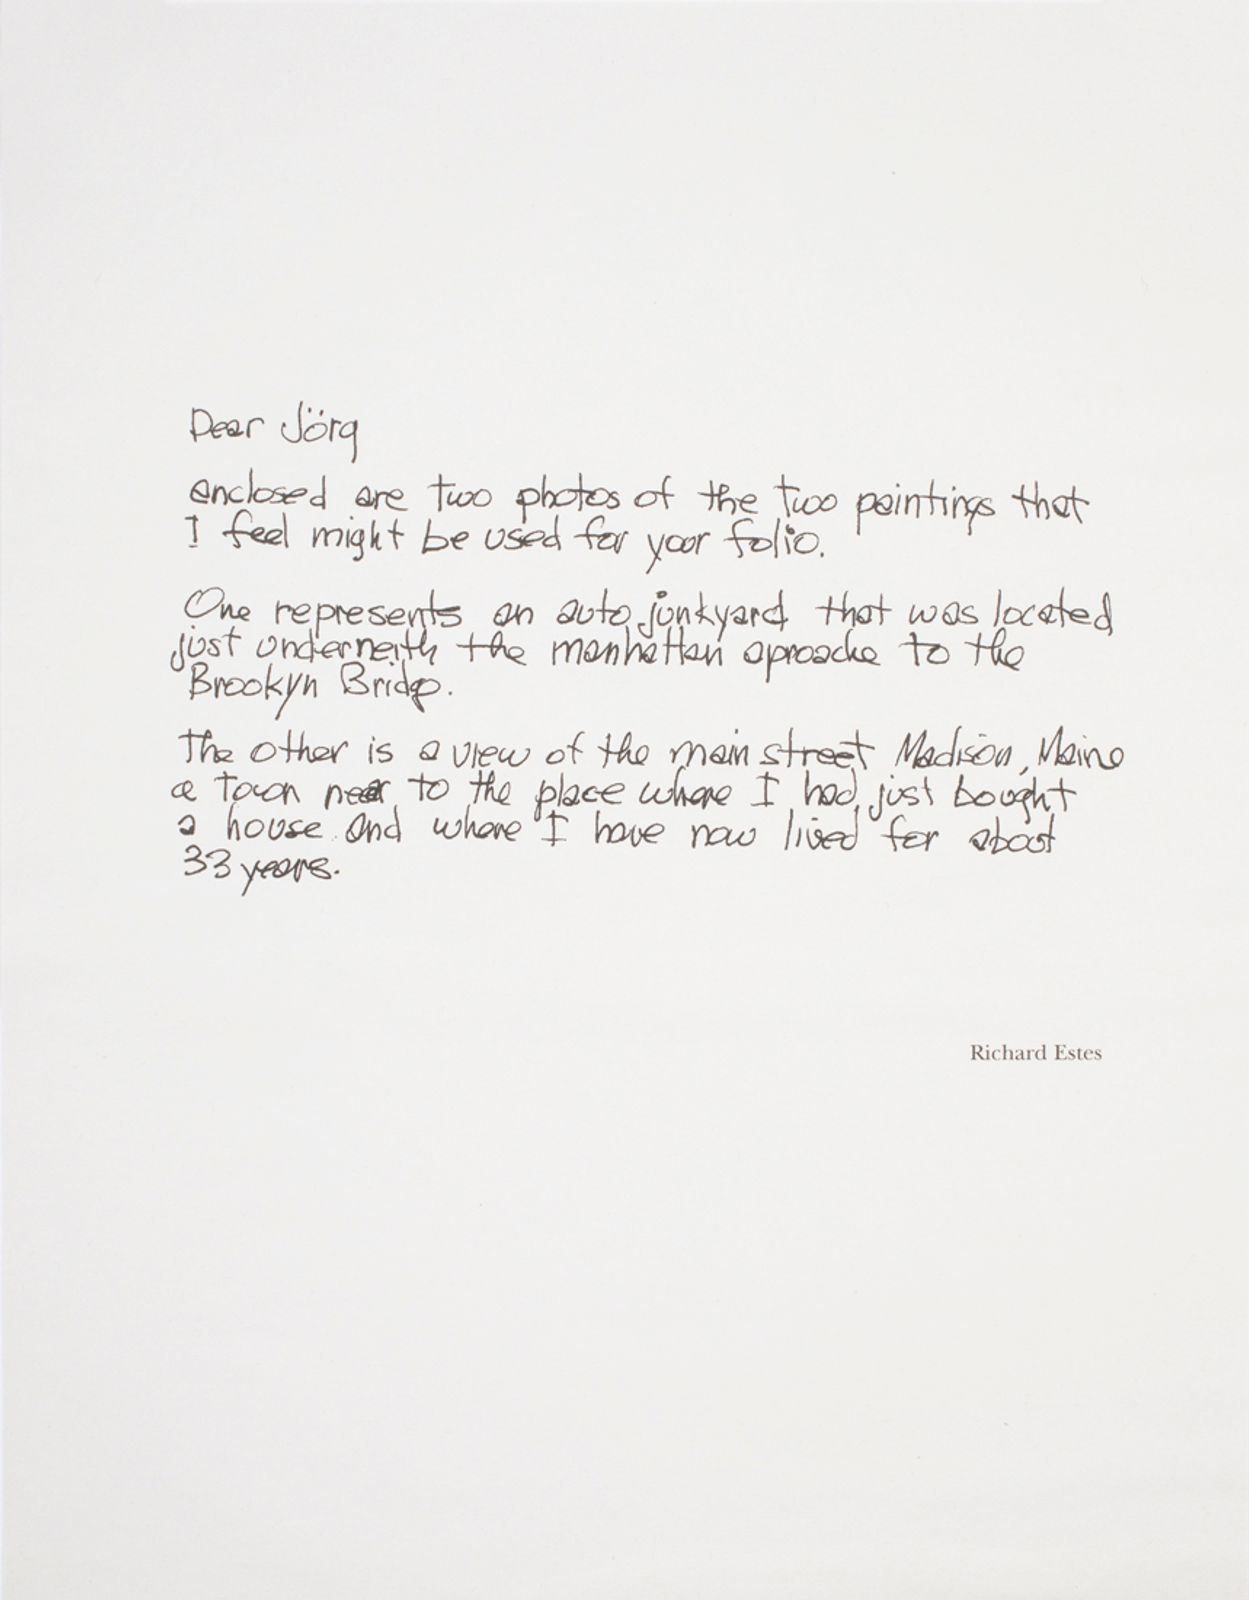 Dear Jörg
enclosed are two photos of the two paintings that
I feel might be used for your folio.
One represents an auto junkyard that was located
just underneith the manhattan aproache to the
Brookyn Bridge.
The other is a view of the main street Madison, Maine
a town near to the place where I had just bought
a house and where I have now lived for about
33 years.
Richard Estes